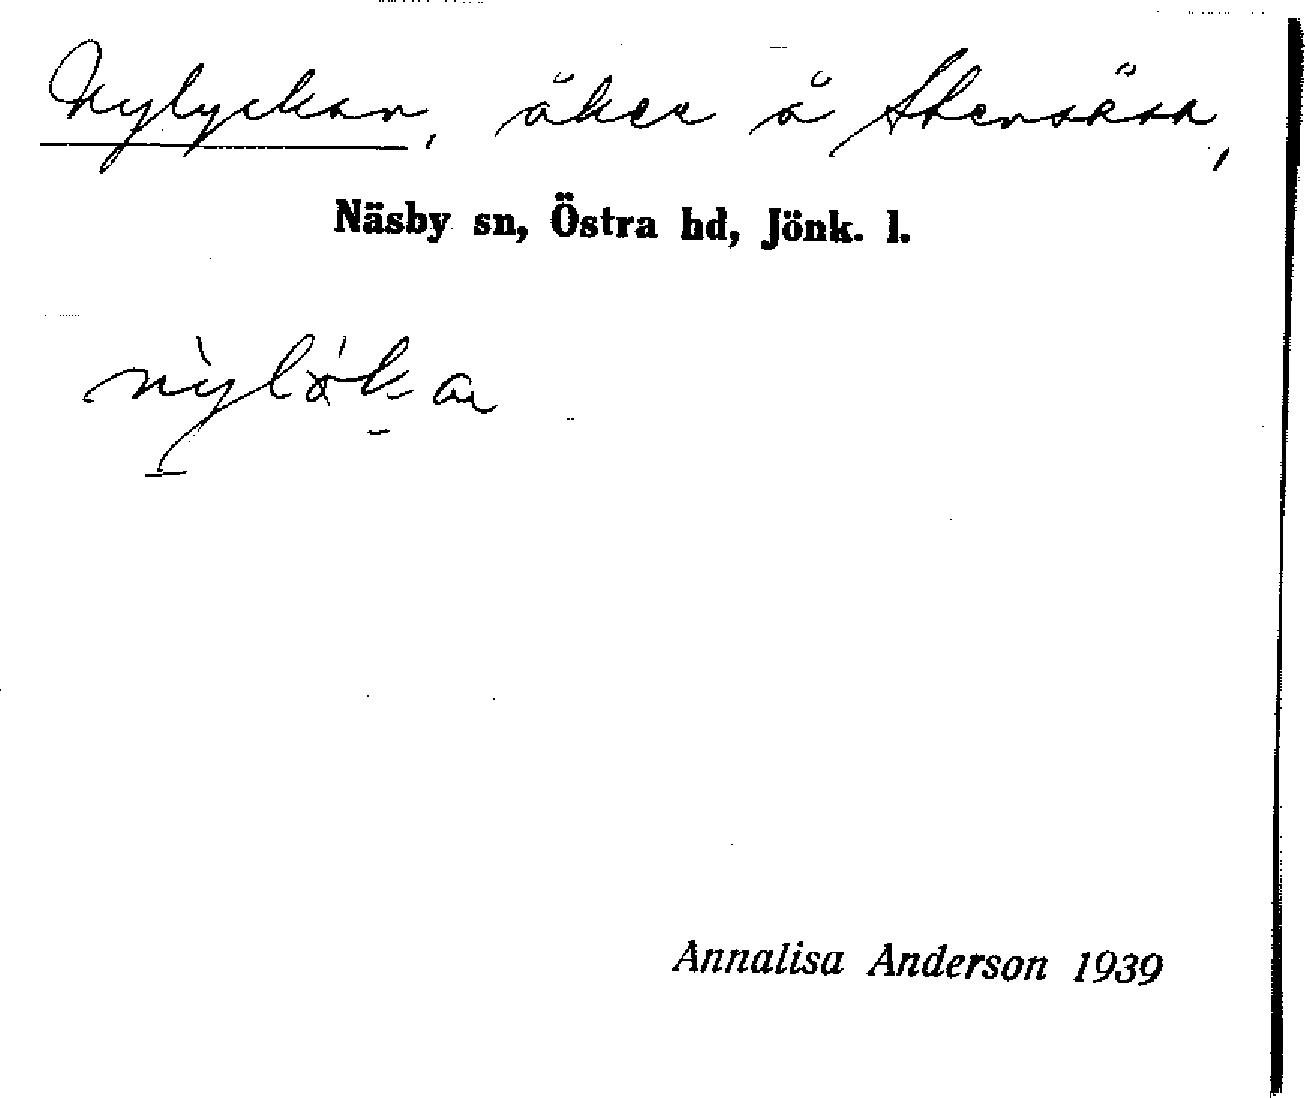 Nylyckan, åker å Stensåsa,
Näsby sn, Östra hd, Jönk. l.
Annalisa Anderson 1939